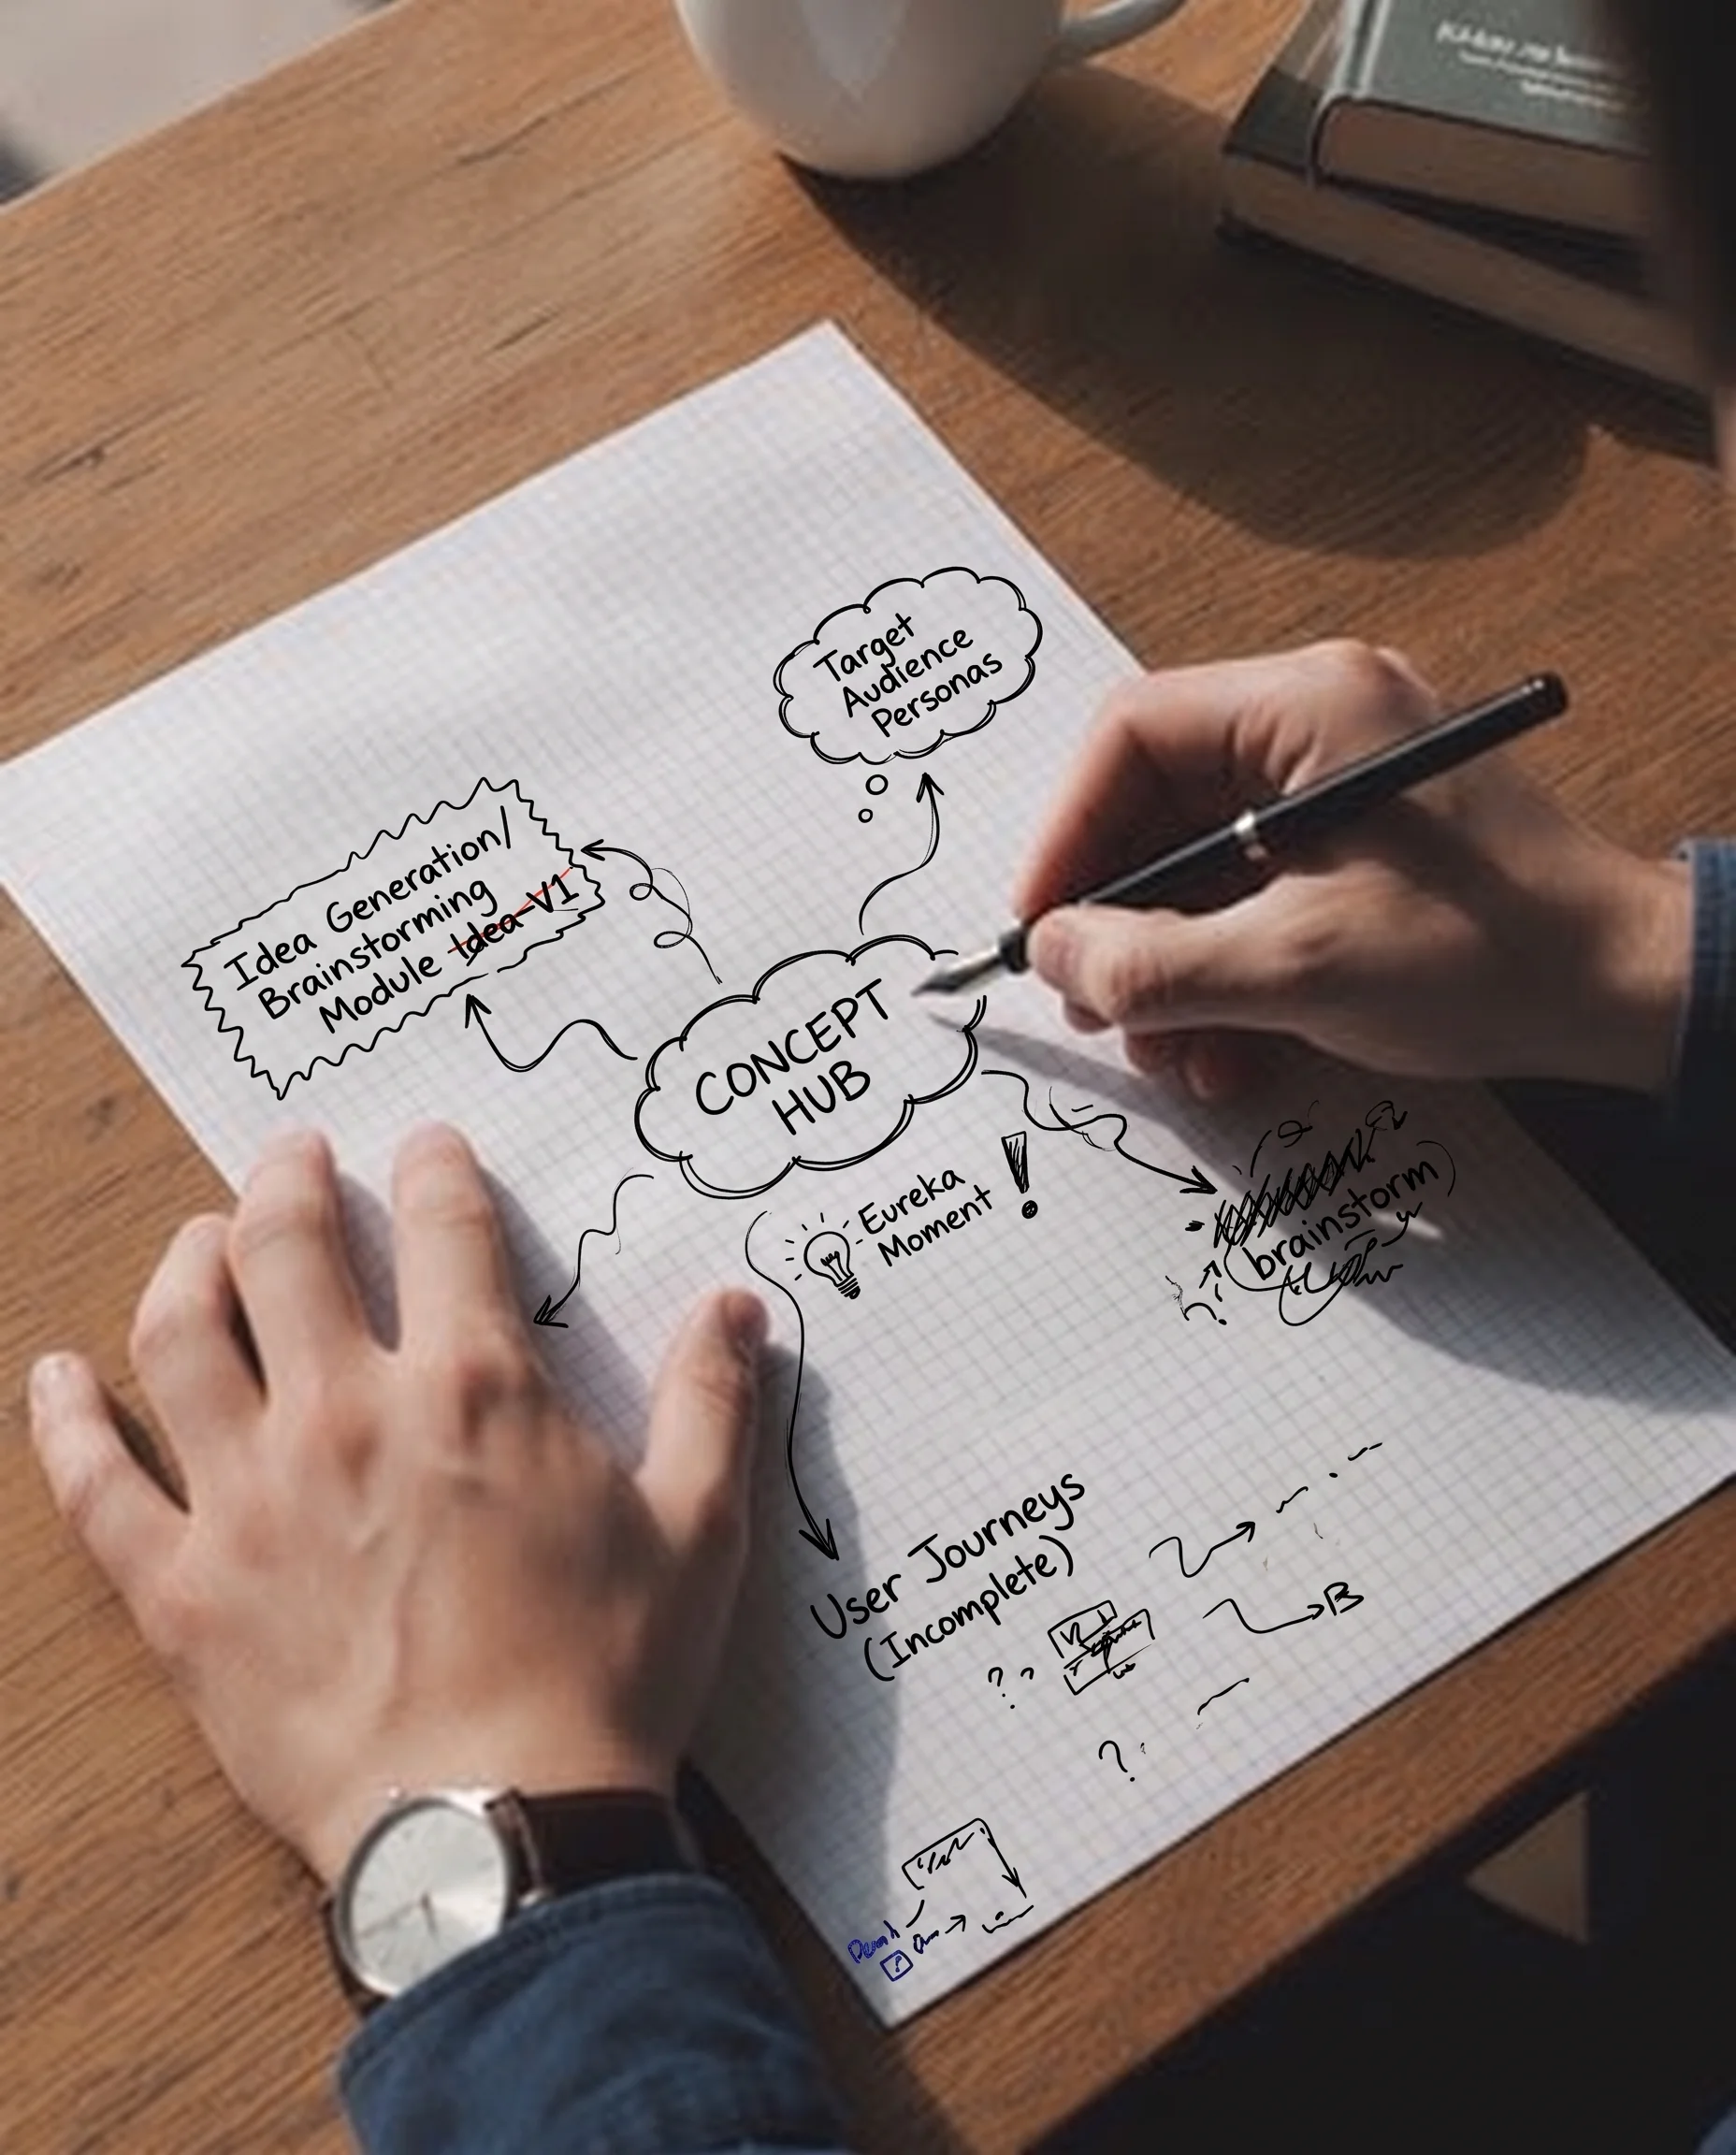 Target
Audience
Personas
Idea Generation/
Brainstorming
Module Idea-V1
CONCEPT
HUB
Eureka
Moment !
brainstorm)
User Journeys
(Incomplete)
? ?
B
?
?